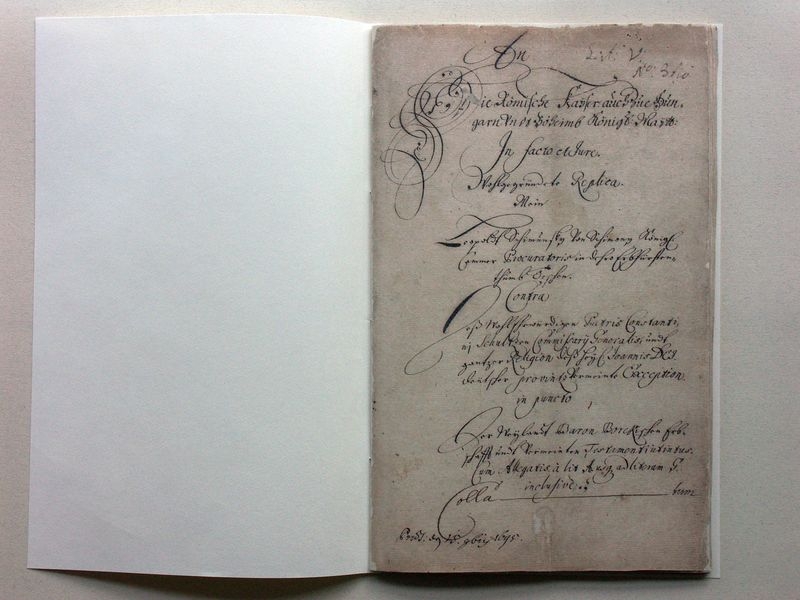 An
Lit: V.
No: 310
Die Römische Kayser auch zue Hun,
garn undt Böheimb Königl: Maytt:
In facto et Jure.
Wohlgegründete Replica.
Mein
Leopoldt Schimunsky von Schimony Königl.
Cammer Procuratoris in dehro Erbfürsten,
thumb Teschen.
Contra
Deß Wohl Ehrwürdigen Patris Constanti,
nj Schultz Commissarij Generalis, undt
gantzer Religion deß Heyl: Joannis DEI
deutscher provintz vermeinte Exception
in puncto
Der Weylandt Baron Borekischen Erb,
schafft undt vermeinten Testamenti intus.
Cum Allegatis à lit A usq ad literam G.
inclusive.
Colla tum
1695.